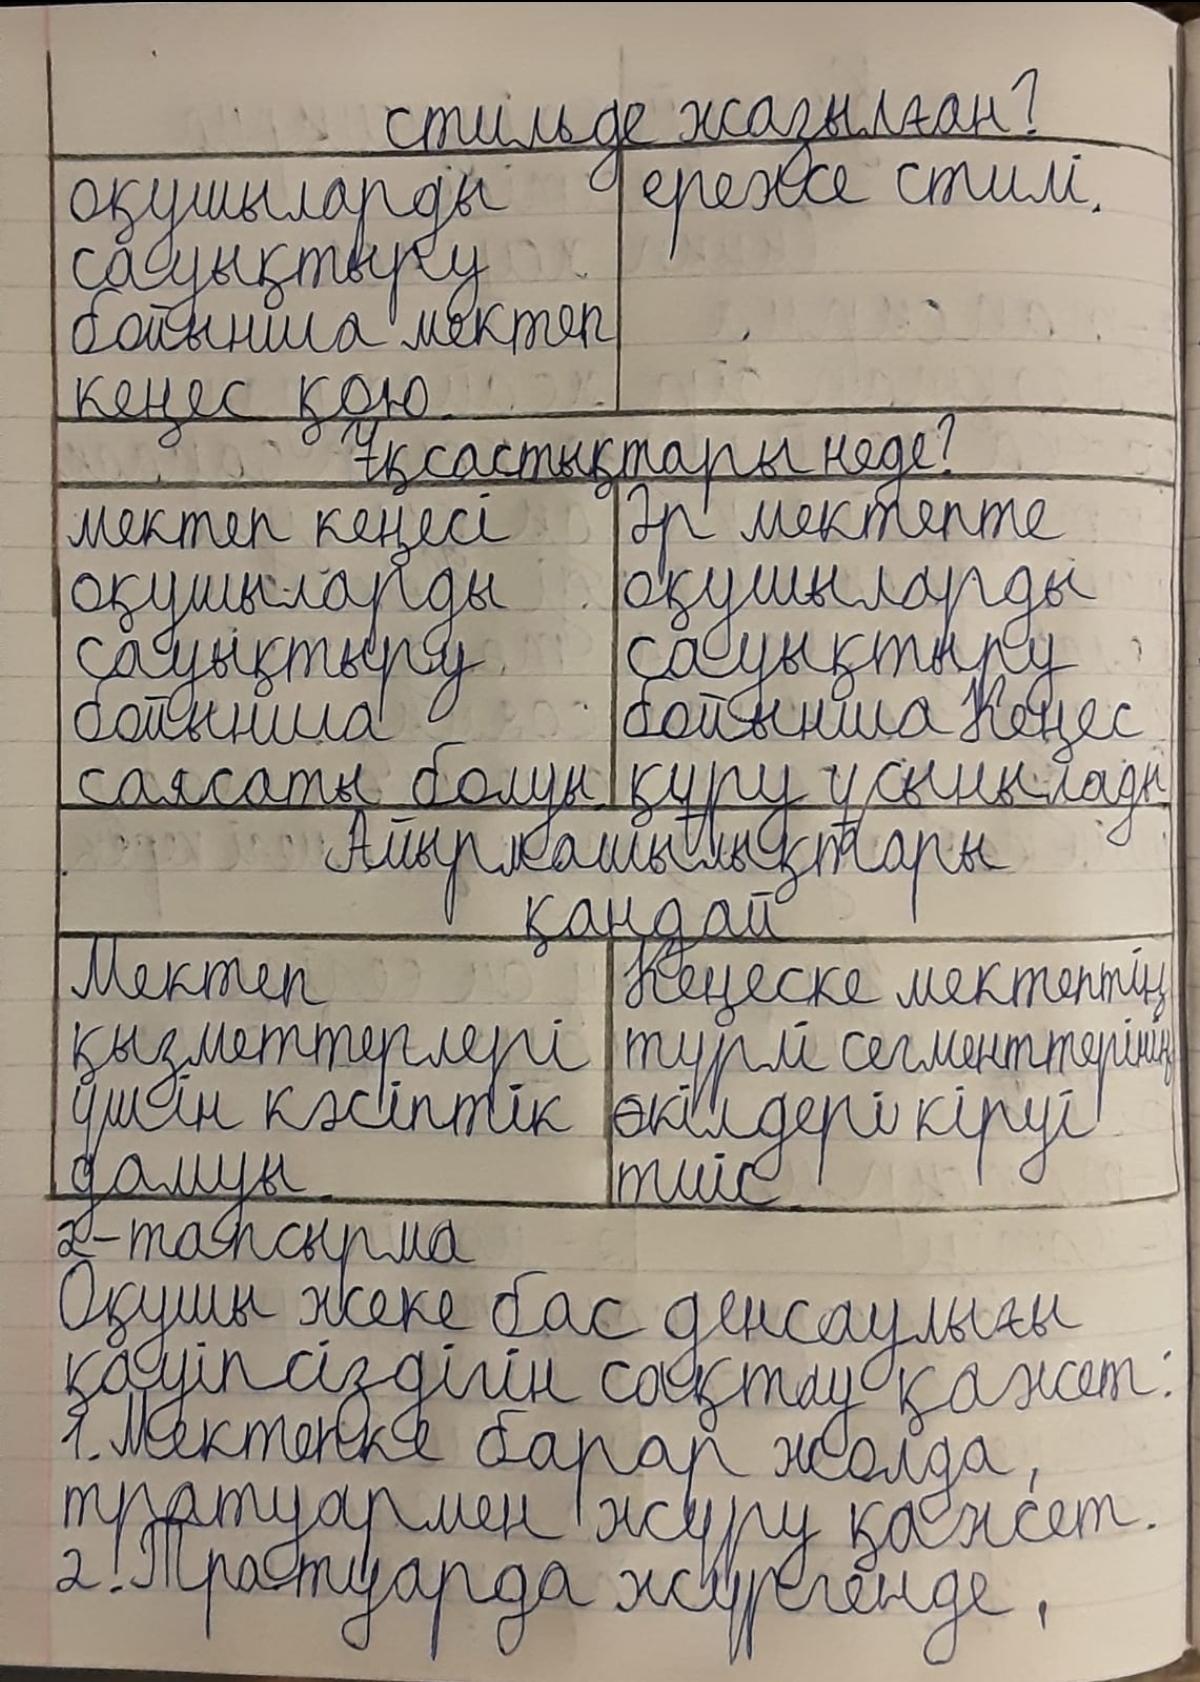 стильде жазылған?
оқушыларды
сауықтыру
бойынша мектеп
кеңес қою.
ереже стилі.
Ұқсастықтары неде?
мектеп кеңесі
оқушыларды
сауықтыру
бойынша
саясаты болуы.
Әр мектепте
оқушыларды
сауықтыру
бойынша Кеңес
құру ұсынылады
Айырмашылықтары
қандай
Мектеп
қызметтерлері
үшін кәсіптік
дамуы.
Кеңеске мектептің
түрлі сегменттерінің
өкілдері кіруі
тиіс
2-тапсырма
Оқушы жеке бас денсаулығы
қауіпсіздігін сақтау қажет:
1. Мектепке барар жолда,
тратуармен жүру қажет.
2. Тратуарда жүргенде,